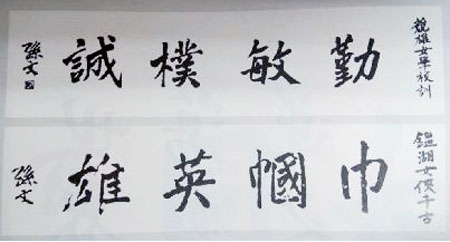 競雄女學校訓
勤敏樸誠
孫文
鑑湖女俠千古
巾幗英雄
孫文